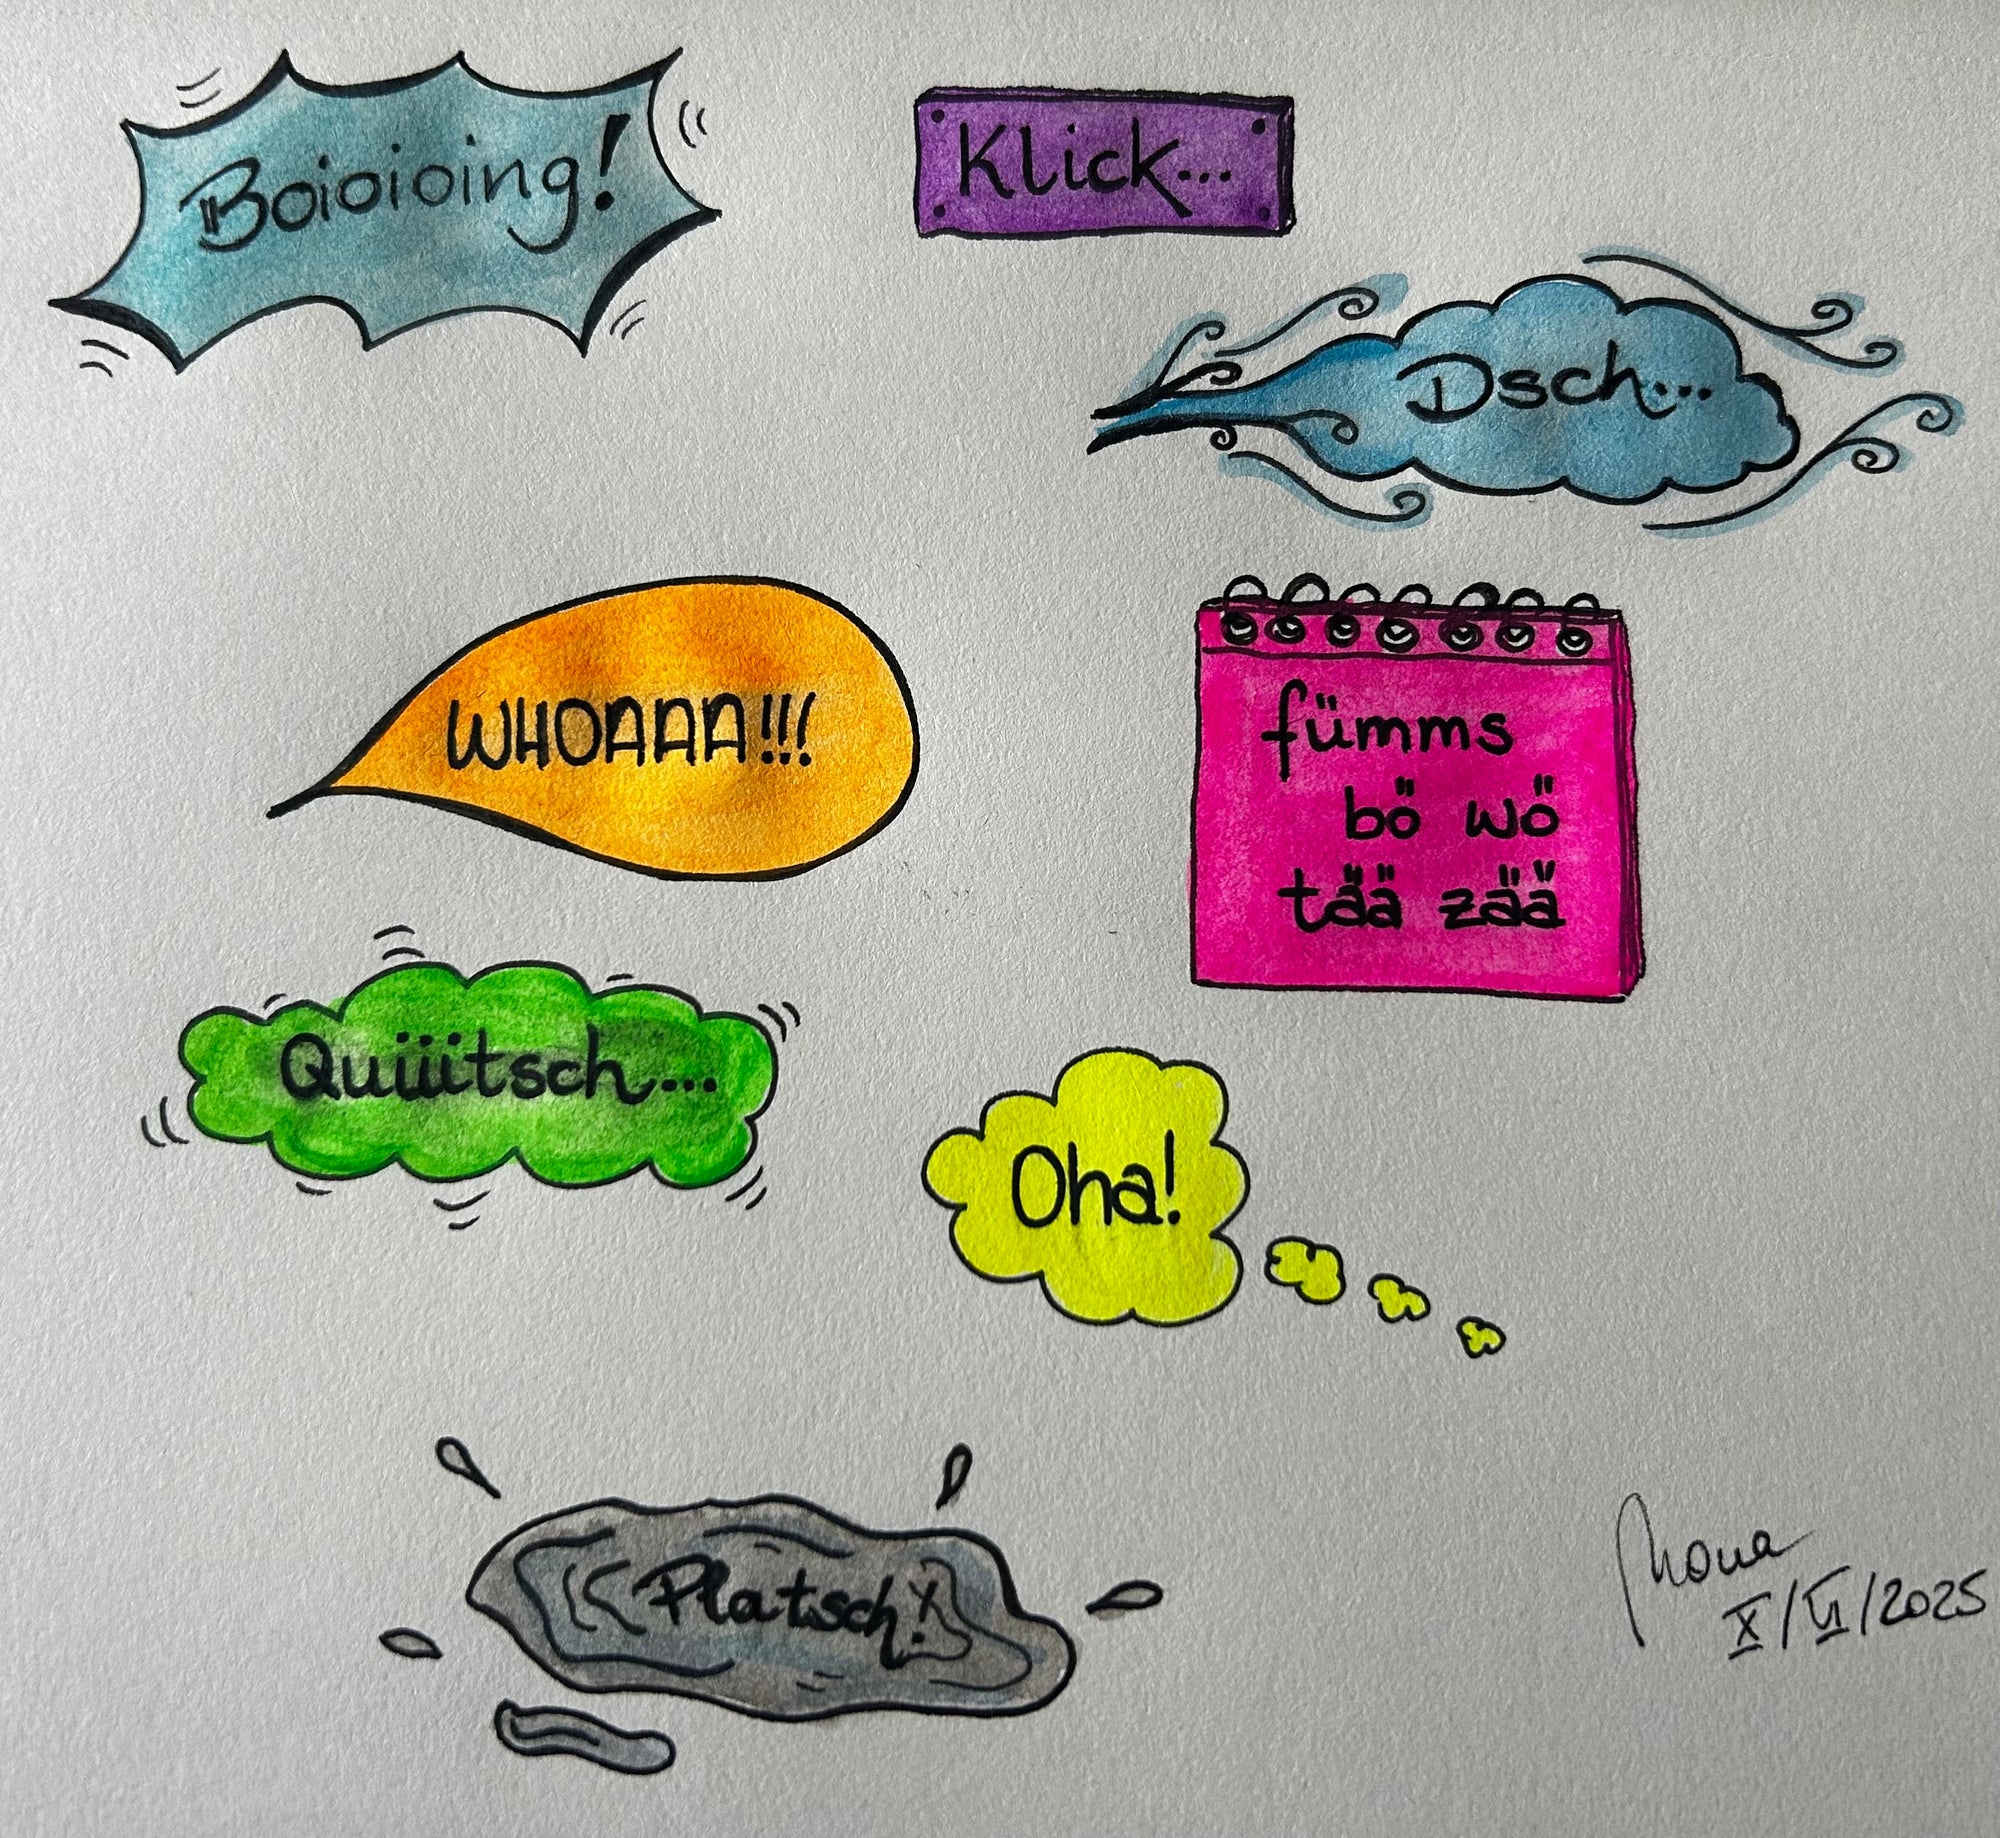 Boioioing!
Klick...
Dsch...
WHOAAA!!!
fümms
bö wö
tää zää
Quüüitsch...
Oha!
Platsch!
Mona
X/VI/2025